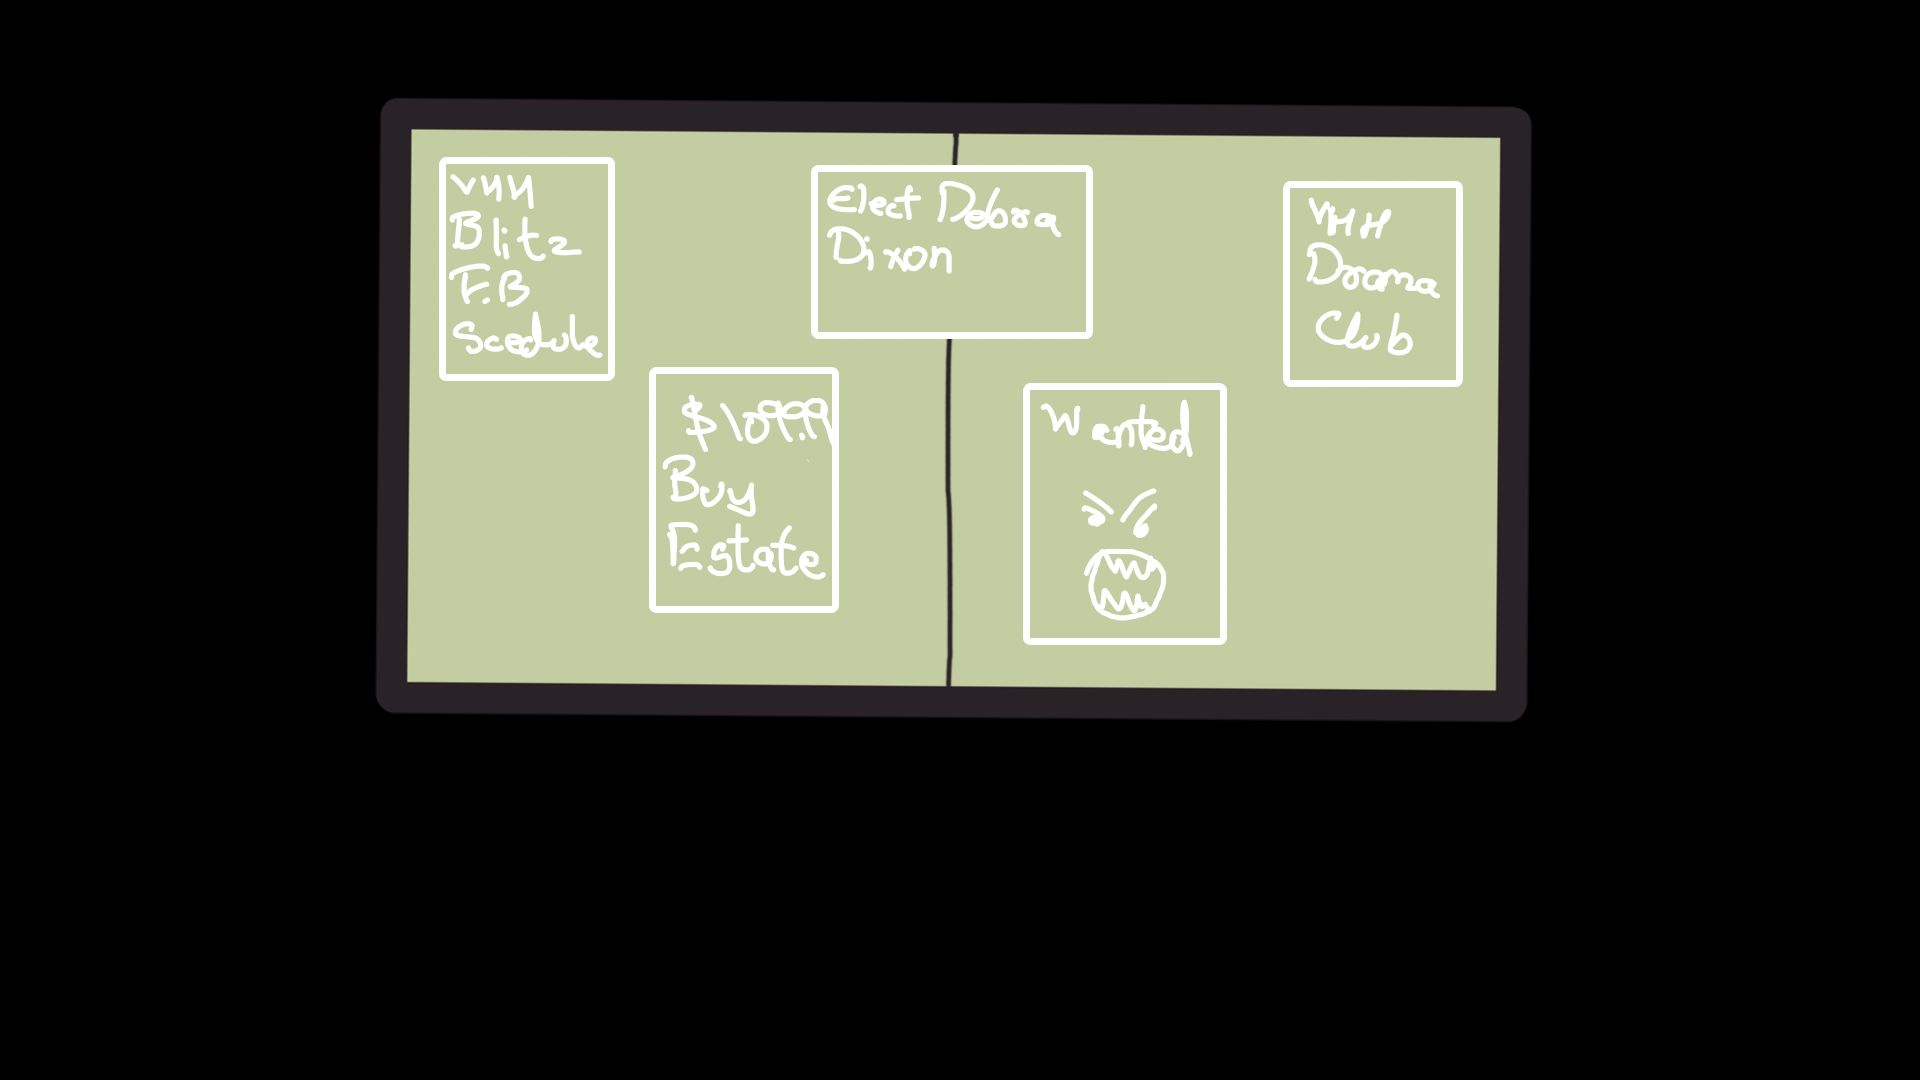 VHH
Blitz
F.B
Scedule
Elect Debra
Dixon
VHH
Drama
Club
$109.99
Buy
Estate
Wanted